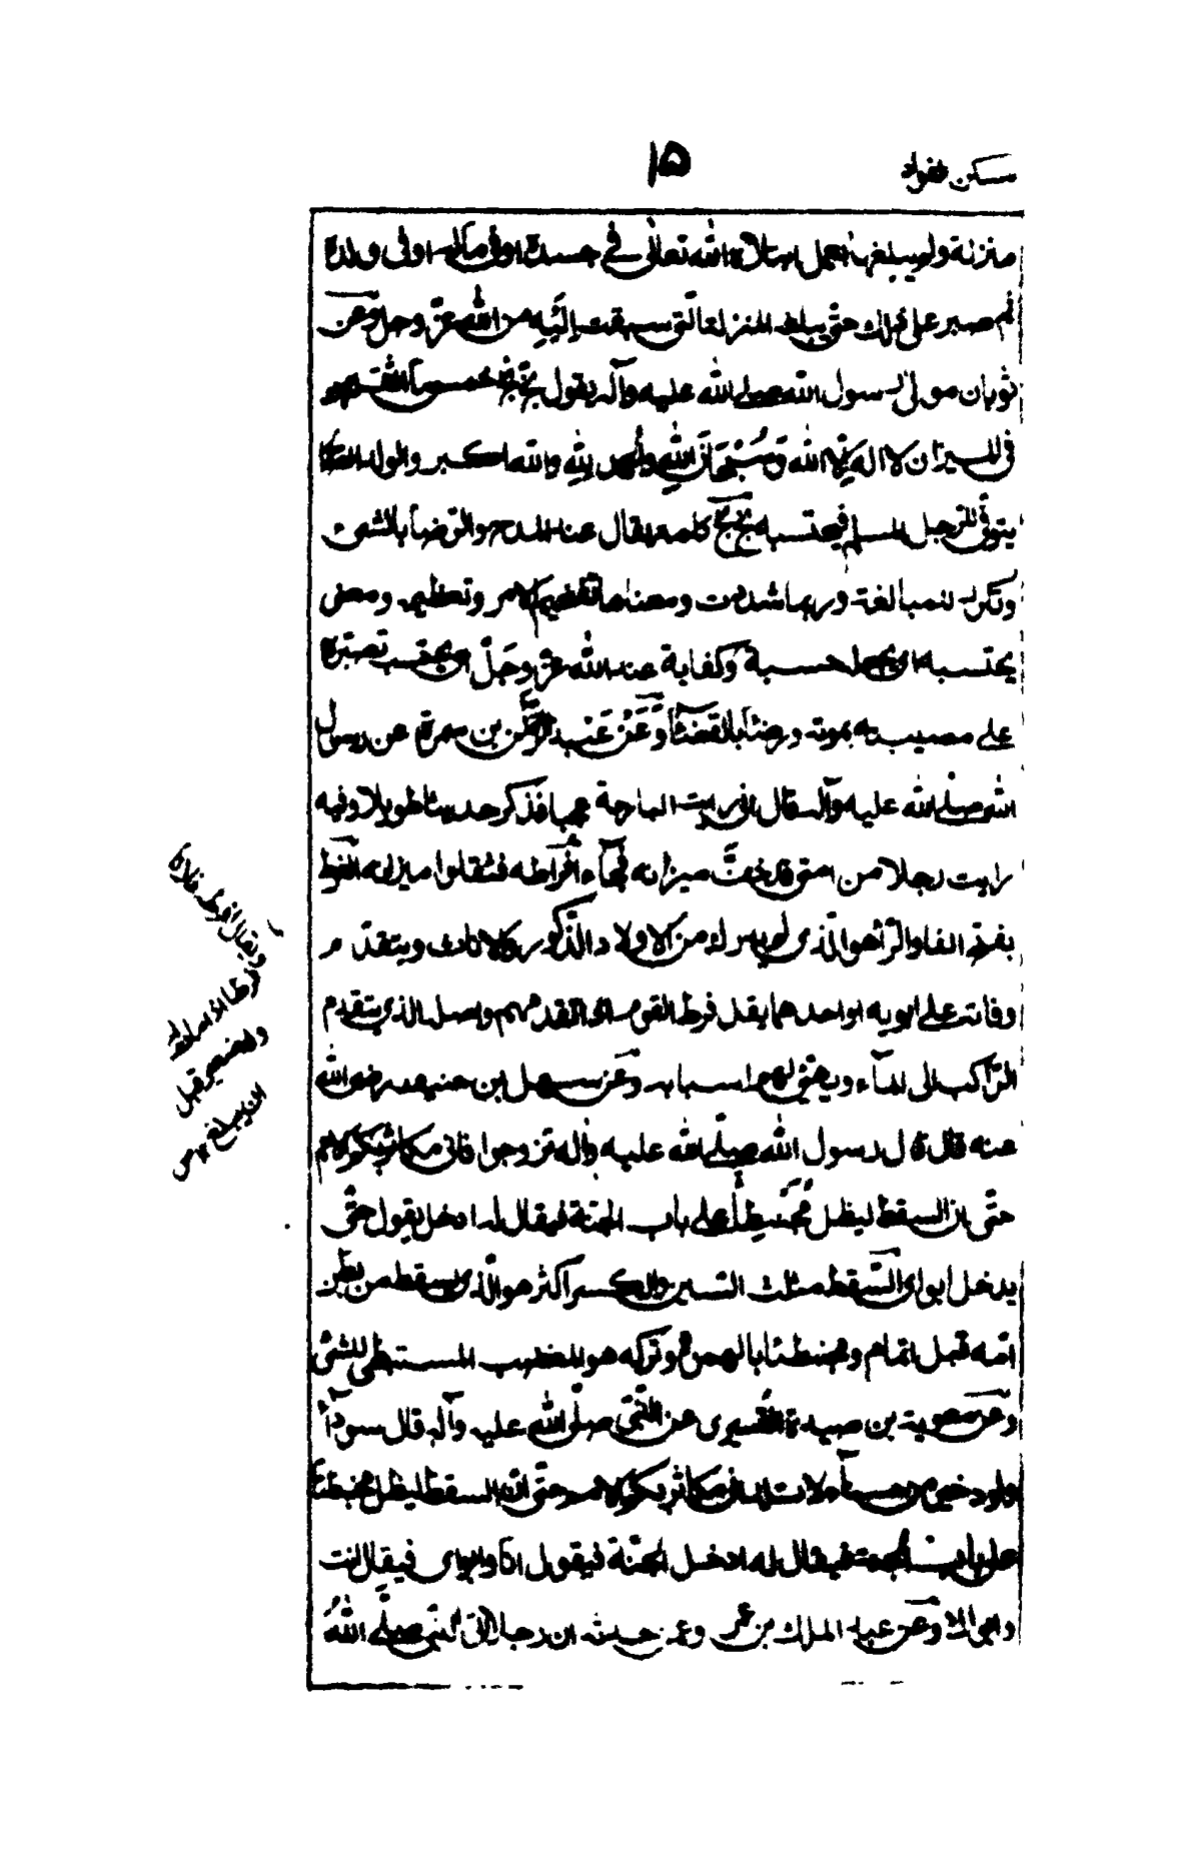 مسكن الفواد
۱۵
منزلة ولم يبلغها بعمل ابتلاه الله تعالى في جسده او في ماله او في ولده
ثم صبر على ذلك حتى يبلغه المنزلة التي سبقت إليه من الله عزّ وجلّ وعن
ثوبان مولى رسول الله صلى الله عليه وآله يقول بخّ بخّ خمس ما اثقلهن
في الميزان لا اله إلا الله وسُبْحَانَ اللهِ والحمد لله والله اكبر والولد الصالح
يتوفى للرجل المسلم فيحتسبه بخّ بخّ كلمة يقال عند المدح والرّضا بالشئ
وتكرر للمبالغة وربما شددت ومعناها تفخيم الامر وتعظيمه ومعنى
يحتسبه اى يجعله حسبة وكفاية عند الله عزّ وجَلّ اى يحتسب تصبّره
على مصيبته بموته ورضئًا بالقضَآء وَعَنْ عَبْد الرّحمن بن سمرة عن رسول
الله صلى الله عليه وآله قال انى رايت البارحة عجبا فذكر حديثا طويلا وفيه
رايت رجلا من امتى قد خفّت ميزانه فجآء افراطه فثقلوا ميزانه الفرط
بفتح الفا والرّا هو الّذى لم يدرك من الاولاد الذّكور والاناث ويتقدّم
وفاته على ابويه او احدهما يقال فرط القوم اذا تقدمهم واصله الذى يتقدم
الرّاكب الى المآء ويهيّئ لهم اسبابه وعَن سهل بن حنيف رضى الله
عنه قال قال رسول الله صلّى الله عليه وآله تزوجوا فانى مكاثر بكم الامم
حتّى ان السقط ليظل مُحْبَنطِئاً على باب الجنّة فيقال له ادخل يقول حتّى
يدخل ابواى السّقط مثلث السين والكسر اكثر هو الّذى يسقط من بطن
امّه قبل اتمام ومحبنطئا بالهمز وتركه هو المغضب المستبطئ للشئ
وعن معوية بن حيدة القُشيرى عن النّبى صلّى الله عليه وآله قال سودآء
ولود خير من حسنآء لا تلد انى مكاثر بكم الامم حتّى انّ السقط ليظل محبنطئاً
على باب الجنة فيقال له ادخل الجنّة فيقول انا وابواى فيقال انت
وابواك وعَن عبد الملك بن عمير وعمن حدثه ان رجلا اتى النّبى صلّى اللهُ
ويقال افرط فلان
فرطا اذا مات له
ولد صغير قبل
ان يبلغ